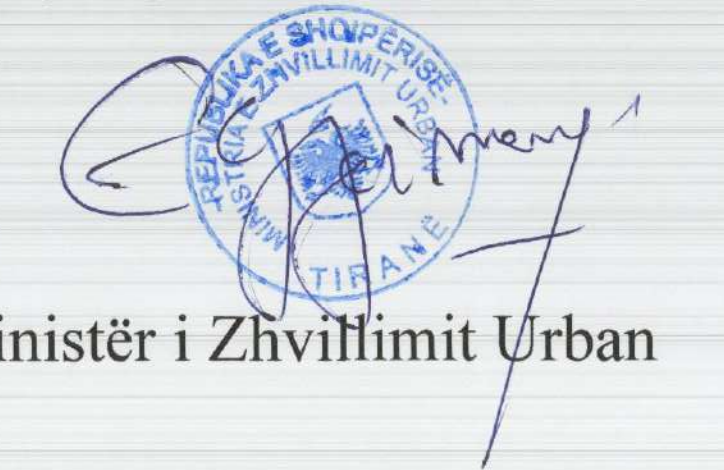 REPUBLIKA E SHQIPËRISË-
MINISTRIA E ZHVILLIMIT URBAN
TIRANË
inistër i Zhvillimit Urban